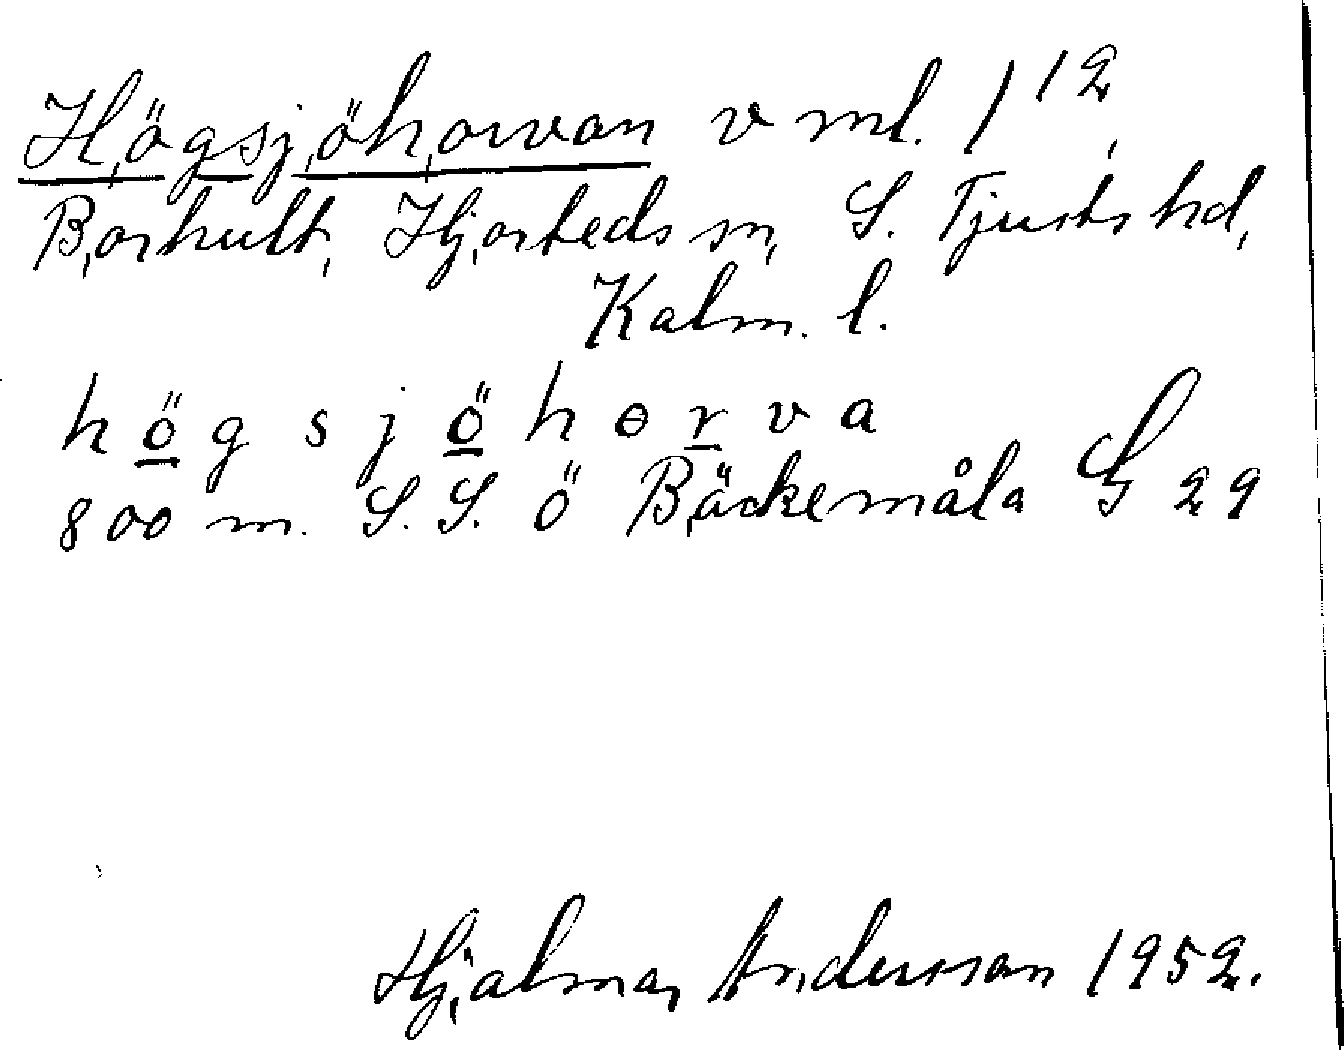 Högsjöhorvan v ml. 1¹²,
Borhult, Hjorteds sn, S. Tjusts hd,
Kalm. l.
högsjöhɵrva
800 m. S.S. Ö Bäckemåla S 29
Hjalmar Andersson 1952.